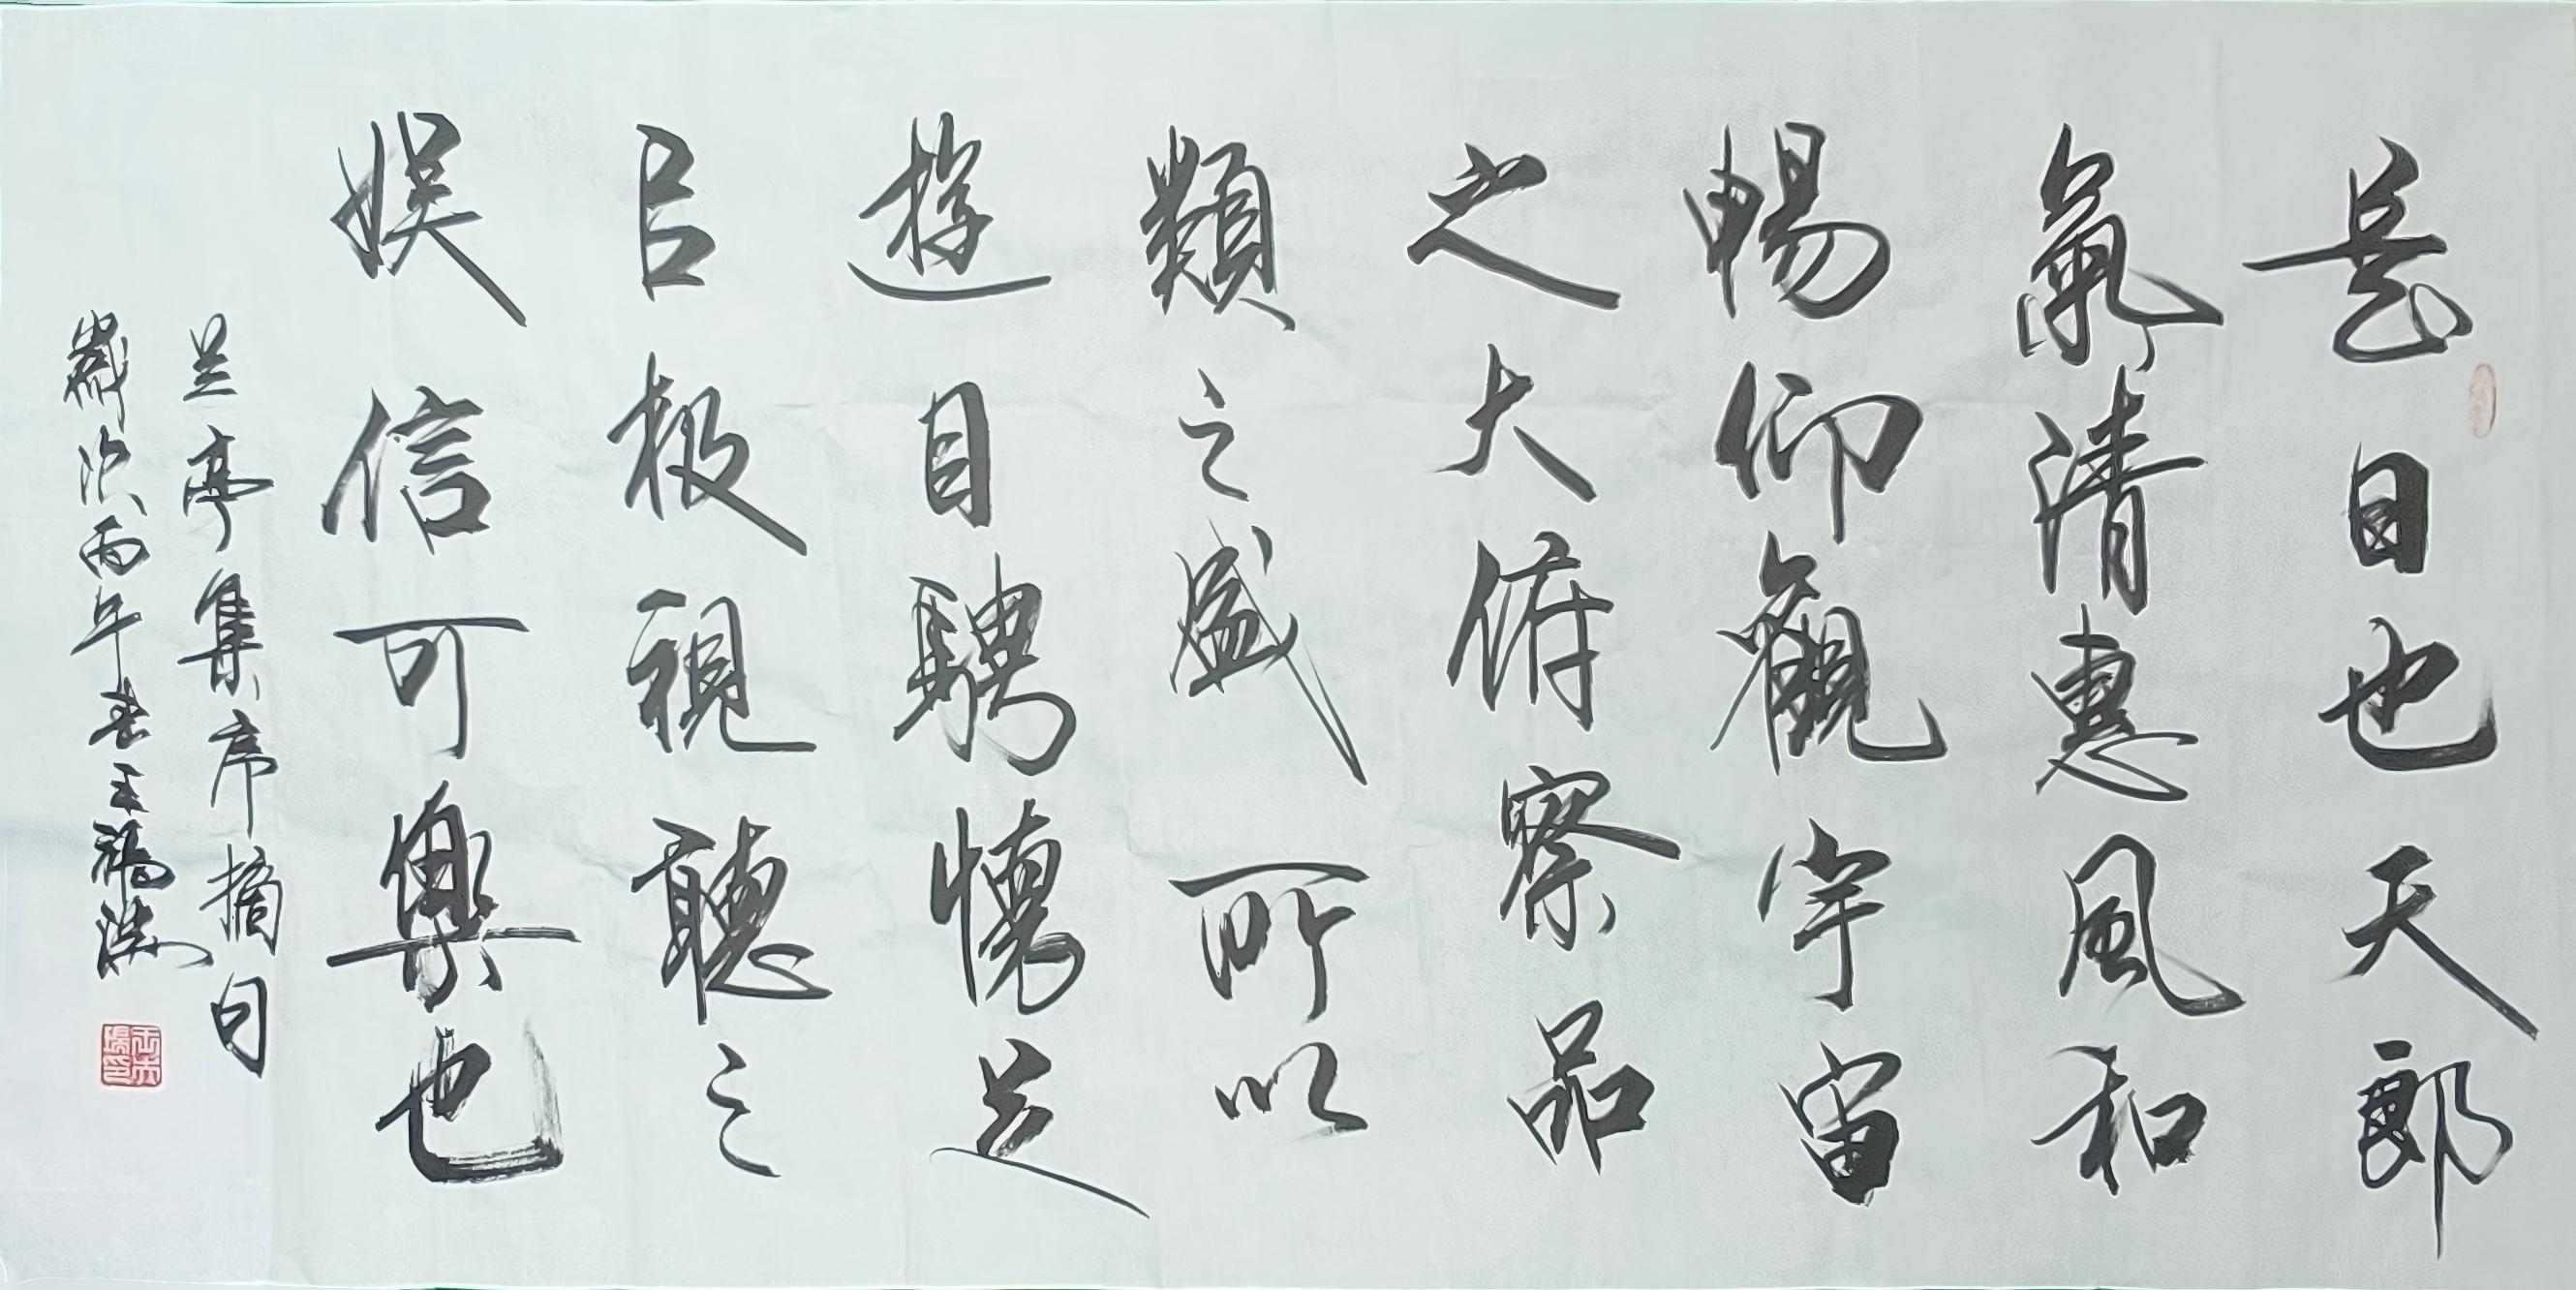 是日也天郎
氣清惠風和
暢仰觀宇宙
之大俯察品
類之盛所以
遊目騁懷足
㠯极視聽之
娱信可樂也
兰亭集序摘句
歲次丙午春王福